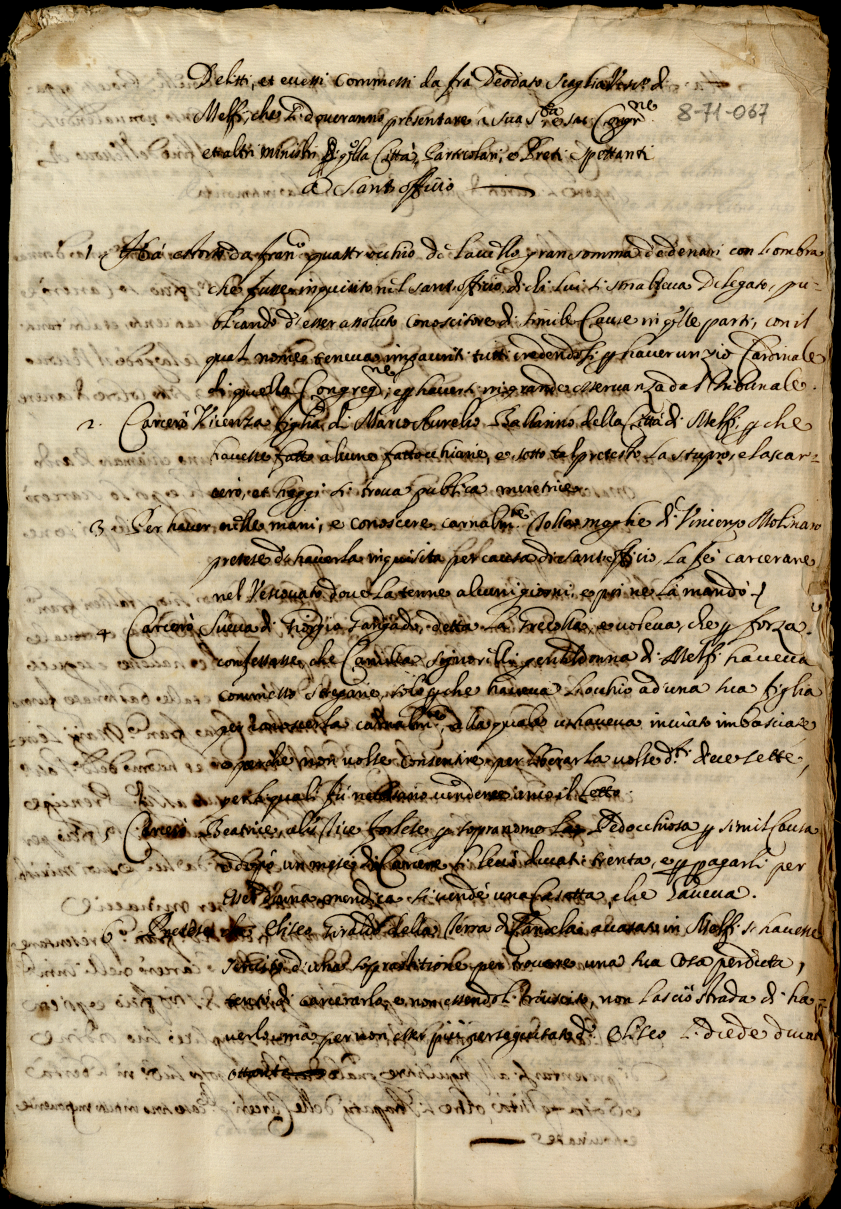 Delitti, et eccessi commessi da fra Deodato Scaglia Vesc.º di
Melfi, che si doveranno presentare a sua S.tà e sac. Congr.ne
8-71-067
et altri ministri di q.lla Città, Particolari, e Preti spettanti
a Santo officio
1. Hà estorto da Fran.º quattrocchio di Lavello gran somma de denari con l'ombra
che fusse inquisito nel sant'officio, di che lui si smaltiva Delegato, pu-
blicando d'esser assoluto conoscitore di simile Cause in q.lle parti, con il
qual nome teneva impauriti tutti credendosi p haver un zio Cardinale
di quella Congreg.ne, e p haversi in grande osservanza da Tribunale.
2. Carcerò Vicenza figlia di Marco Aurelio Ballarino della Città di Melfi p che
havesse fatto alcune fattocchiarie, e sotto tal pretesto la stuprò, e la scar-
cerò, et hoggi si trova publica meretrice.
3. Per haver nelle mani, e conoscere carnalm.te moglie di Vincenzo Molinaro
pretese d'haverla inquisita per causa di sant'officio, la fè carcerare
nel Vescovato dove la tenne alcuni giorni, e poi ne la mandò
4. Carcerò Sueva di Giorgio detta la e voleva, che p forza
confessasse, che Camilla Signorelli gentildonna di Melfi haveva
commesso stregarie, solo p che haveva l'occhio ad una sua figlia
per conoscerla carnalm.te, alla quale haveva inviato imbasciate
e perche non volse consentire, per liberarla volse d.ti diece sette,
per la quali fù necessario vendere anco il letto
Carcerò Beatrice, alias p sopranome La Pedocchiosa p simil causa
e dopò un mese di Carcere si levò ducati trenta, e p pagarli per
esser donna mendica si vendè una casetta, che haveva.
6. Pretese che Eliseo della Terra di Candela accasato in Melfi si havesse
servito d'una soprastitione per trovare una sua cosa perduta,
tentò di carcerarlo, e non essendoli riuscito, non lasciò strada di ha-
verlo, mà per non esser più perseguitato d.º Eliseo li diede ducati
ottanta